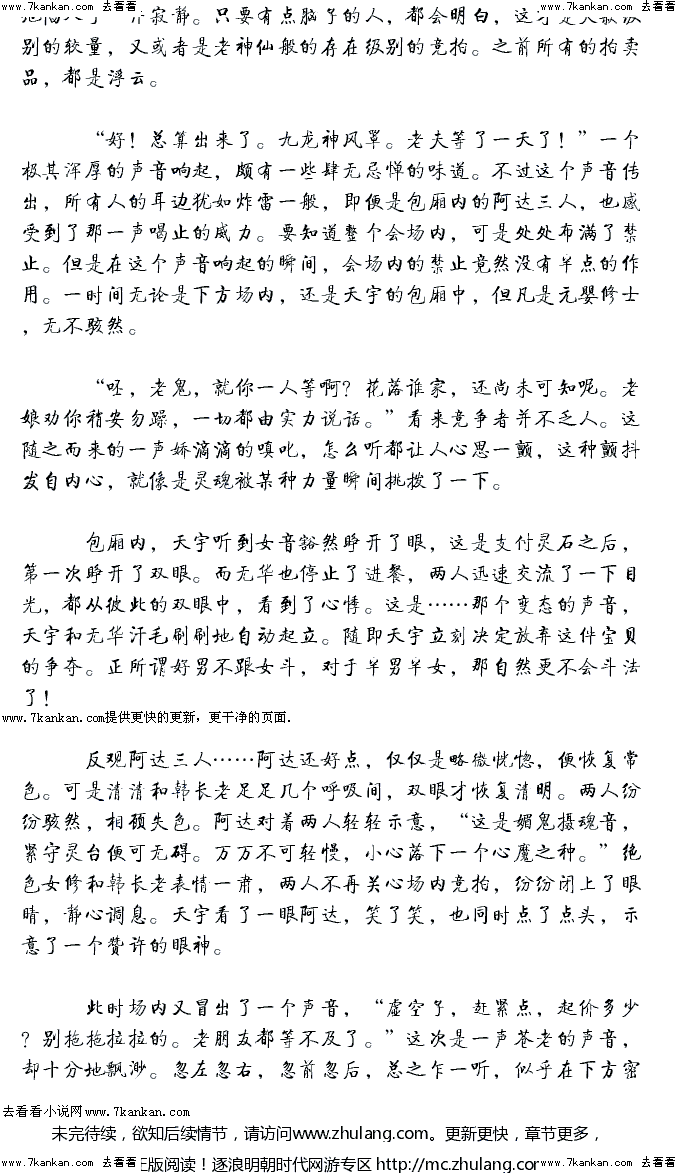 www.7kankan.com 去看看 www.7kankan.com 去看看 www.7kankan.com 去看看 www.7kankan.com 去看看
寂静。只要有点脑子的人，都会明白，这才是
别的较量，又或者是老神仙般的存在级别的竞抬。之前所有的拍卖
品，都是浮云。
“好！总算出来了。九龙神风罩。老夫等了一天了！”一个
极其浑厚的声音响起，颇有一些肆无忌惮的味道。不过这个声音传
出，所有人的耳边犹如炸雷一般，即便是包厢内的阿达三人，也感
受到了那一声喝止的威力。要知道整个会场内，可是处处布满了禁
止。但是在这个声音响起的瞬间，会场内的禁止竟然没有半点的作
用。一时间无论是下方场内，还是天宇的包厢中，但凡是元婴修士
，无不骇然。
“呸，老鬼，就你一人等啊？花落谁家，还尚未可知呢。老
娘劝你稍安勿躁，一切都由实力说话。”看来竞争者并不乏人。这
随之而来的一声娇滴滴的嗔叱，怎么听都让人心思一颤，这种颤抖
发自内心，就像是灵魂被某种力量瞬间挑拨了一下。
包厢内，天宇听到女音豁然睁开了眼，这是支付灵石之后，
第一次睁开了双眼。而无华也停止了进餐，两人迅速交流了一下目
光，都从彼此的双眼中，看到了心悸。这是……那个变态的声音，
天宇和无华汗毛刷刷地自动起立。随即天宇立刻决定放弃这件宝贝
的争夺。正所谓好男不跟女斗，对于半男半女，那自然更不会斗法
了！
www.7kankan.com提供更快的更新，更干净的页面.
反观阿达三人……阿达还好点，仅仅是略微恍惚，便恢复常
色。可是清清和韩长老足足几个呼吸间，双眼才恢复清明。两人纷
纷骇然，相顾失色。阿达对着两人轻轻示意，“这是媚鬼摄魂音，
紧守灵台便可无碍。万万不可轻慢，小心落下一个心魔之种。”绝
色女修和韩长老表情一肃，两人不再关心场内竞抬，纷纷闭上了眼
睛，静心调息。天宇看了一眼阿达，笑了笑，也同时点了点头，示
意了一个赞许的眼神。
此时场内又冒出了一个声音，“虚空子，赶紧点，起价多少
？别拖拖拉拉的。老朋友都等不及了。”这次是一声苍老的声音，
却十分地飘渺。忽左忽右，忽前忽后，总之乍一听，似乎在下方密
去看看小说网www.7kankan.com
未完待续，欲知后续情节，请访问www.zhulang.com。更新更快，章节更多，
www.7kankan.com 去看看 正版阅读！逐浪明朝时代网游专区 http://mc.zhulang.com www.7kankan.com 去看看